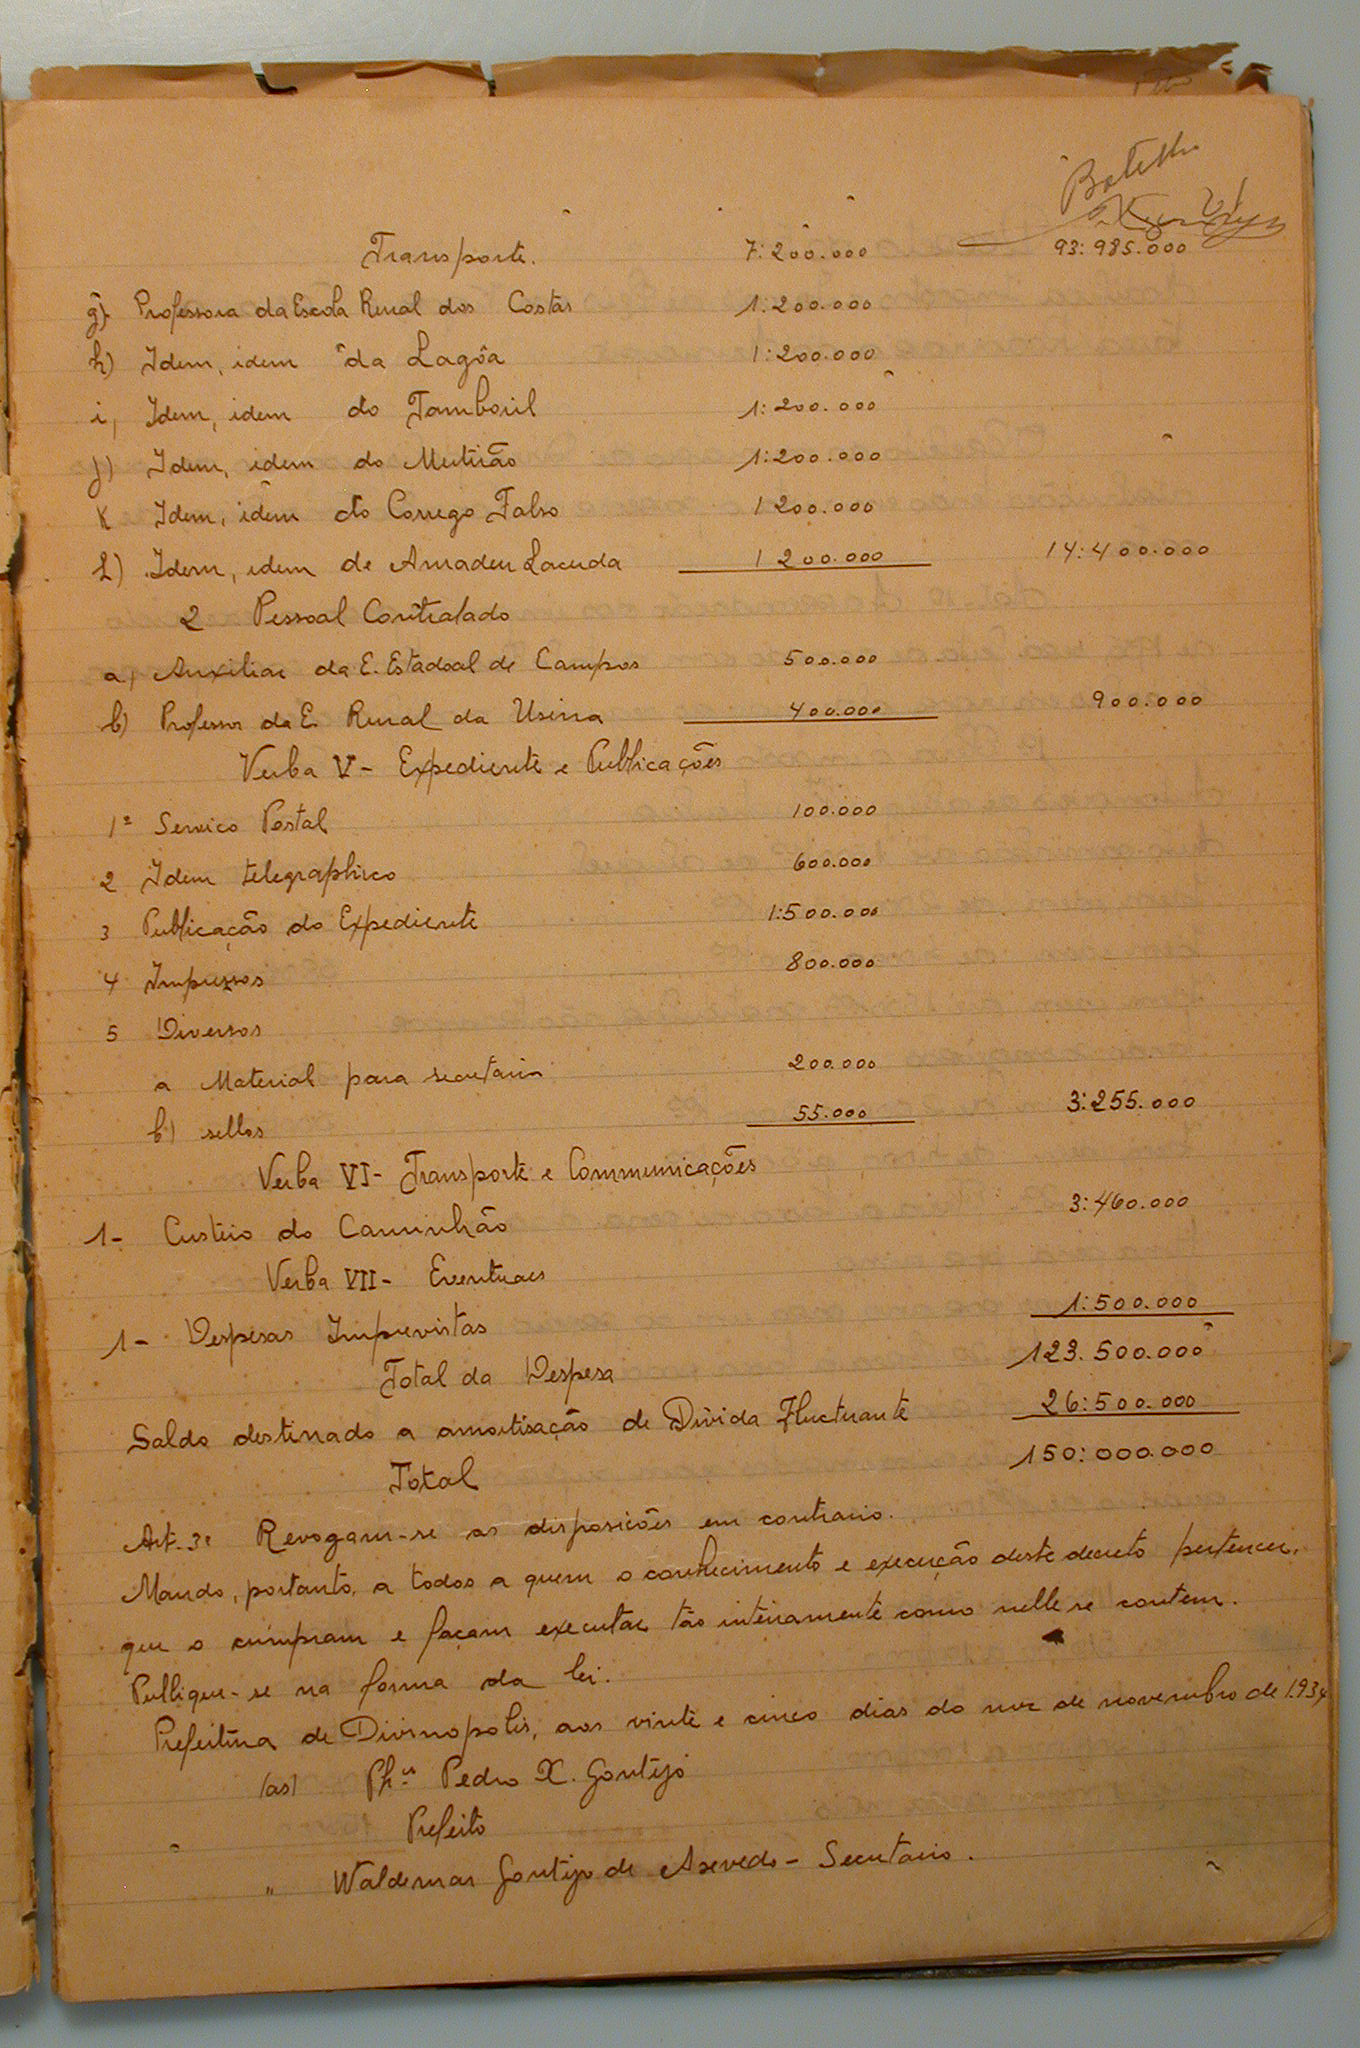 Botelho
Transporte. 7:200.000 93:985.000
g) Professora da Escola Rural dos Costas 1:200.000
h) Idem, idem da Lagôa 1:200.000
i, Idem, idem do Tamboril 1:200.000
j) Idem, idem do Mutirão 1:200.000
K Idem, idem do Corrego Falso 1 200.000
L) Idem, idem de Amadeu Lacerda 1 200.000 14:400.000
2 Pessoal Contratado
a, Auxiliar da E. Estadoal de Campos 500.000
b) Professor da E. Rural da Usina 400.000 900.000
Verba V - Expediente e Publicações
1º Serviço Postal 100.000
2 Idem telegraphico 600.000
3 Publicação do Expediente 1:500.000
4 Impressos 800.000
5 Diversos
a Material para secretaria 200.000
b) sellos 55.000 3:255.000
Verba VI - Transporte e Communicações
1- Custeio do Caminhão 3:460.000
Verba VII - Eventuaes
1- Despesas Imprevistas 1:500.000
Total da Despesa 123.500.000
Saldo destinado a amortisação de Divida Fluctuante 26:500.000
Total 150:000.000
Art. 3º Revogam-se as disposicões em contrario.
Mando, portanto, a todos a quem o conhecimento e execução deste decreto pertencer,
que o cumpram e façam executar tão inteiramente como nelle se contem.
Publique-se na forma da lei.
Prefeitura de Divinopolis, aos vinte e cinco dias do mez de novembro de 1.934
(as) Phco Pedro X. Gontijo
Prefeito
" Waldemar Gontijo de Azevedo - Secretario.